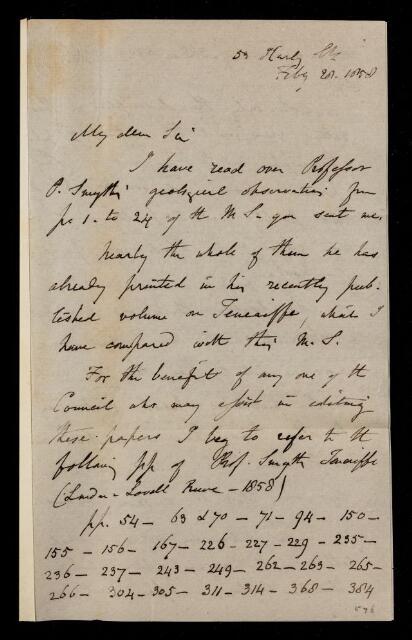 53 Harley St
Feby 20. 1858
My dear Sir
I have read over Professor
P. Smyth's geological observations from
pe 1. to 24 of the M.S. you sent me.
Nearly the whole of them he has
already printed in his recently pub-
lished volume on Teneriffe, which I
have compared with this M.S.
For the benefit of any one of the
Council who may assist in editing
these papers I beg to refer to the
following pp of Prof. Smyth Teneriffe
(London - Lovell Reeve - 1858)
pp. 54 - 63 & 70 - 71 - 94 - 150 -
155 - 156 - 167 - 226 - 227 - 229 - 235 -
236 - 237 - 243 - 249 - 262 - 263 - 265 -
266 - 304 - 305 - 311 - 314 - 368 - 384